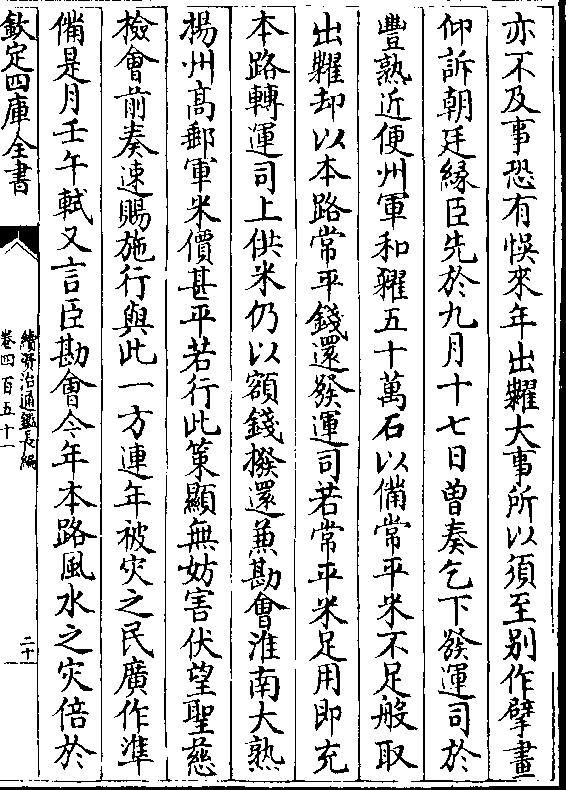 亦不及事恐有悞來年出糶大事所以須至别作擘畫
仰訴朝廷緣臣先於九月十七日曽奏乞下發運司於
豐熟近便州軍和糴五十萬石以備常平米不足般取
出糶却以本路常平錢還發運司若常平米足用即充
本路轉運司上供米仍以額錢撥還兼勘會淮南大熟
揚州髙郵軍米價甚平若行此策顯無妨害伏望聖慈
檢會前奏速賜施行與此一方連年被灾之民廣作凖
備是月壬午軾又言臣勘會今年本路風水之灾倍於
欽定四庫全書
續資治通鑑長編
卷四百五十一
二十